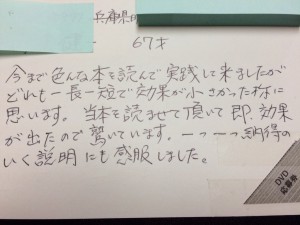 兵庫県
67才
今まで色んな本を読んで実践して来ましたが
どれも一長一短で効果が小さかった様に
思います。当本を読ませて頂いて即、効果
が出たので驚いています。一つ一つ納得の
いく説明にも感服しました。
DVD
応募券